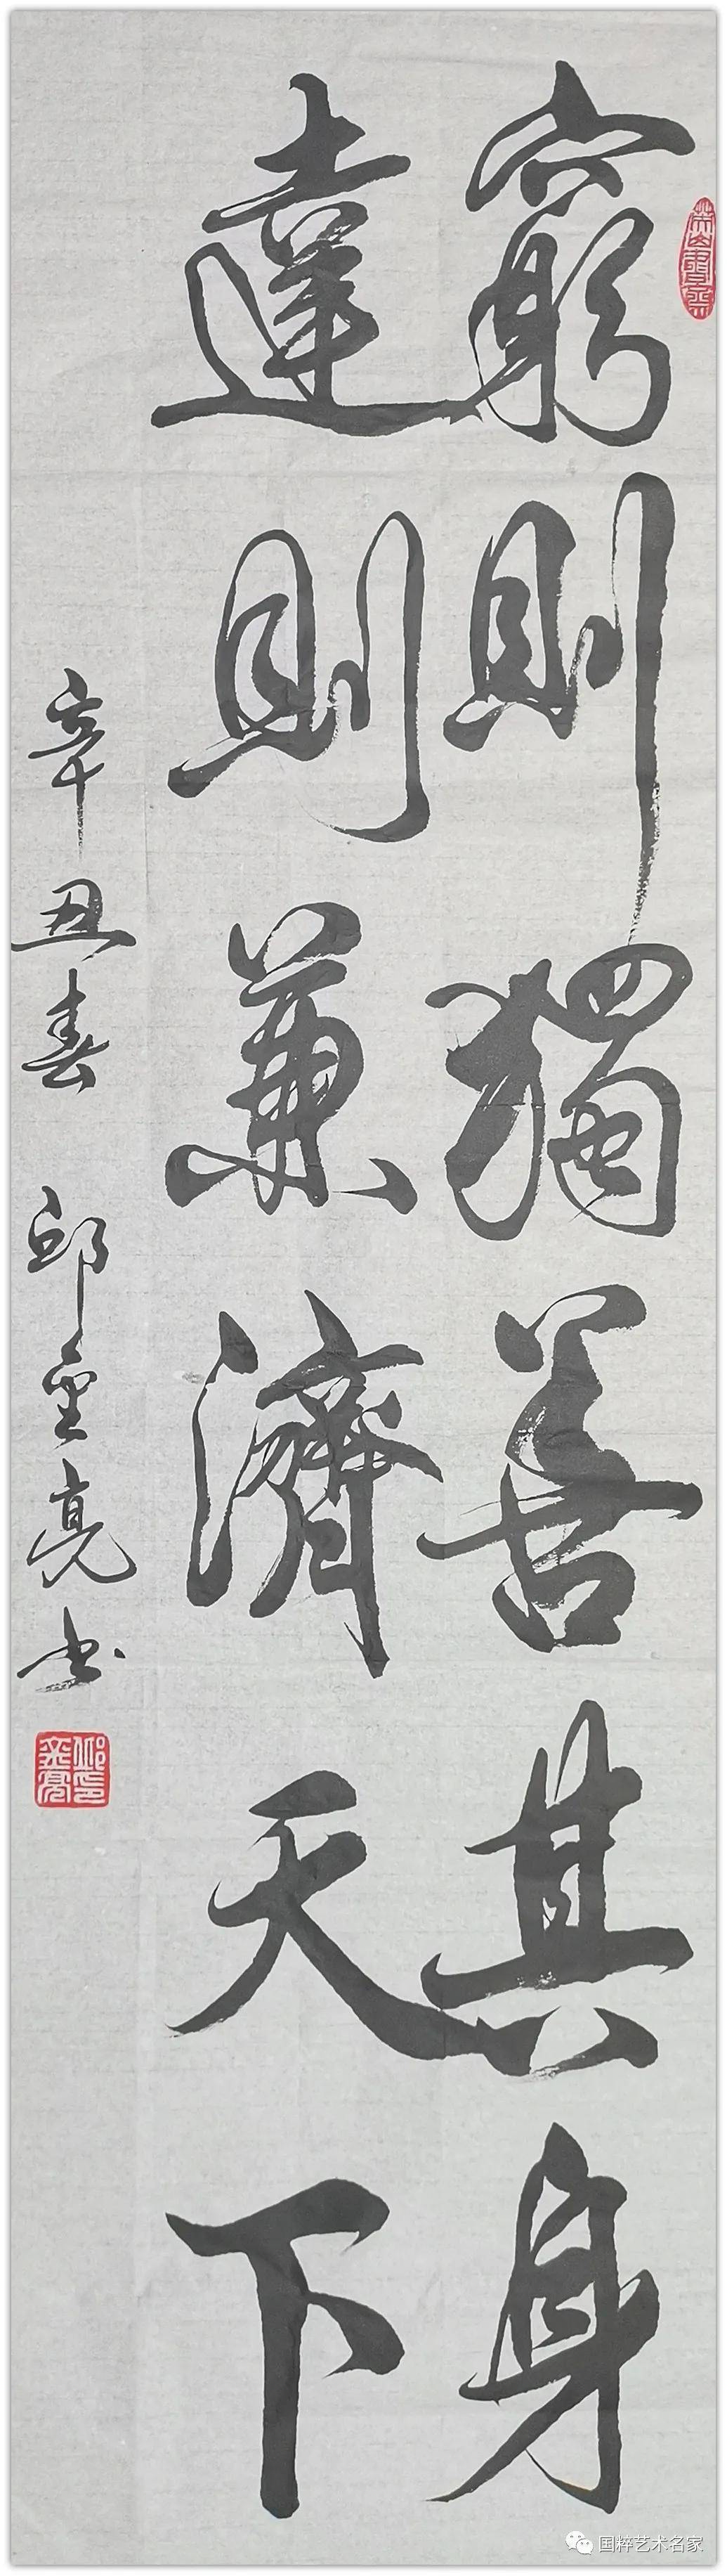 窮則獨善其身
達則兼濟天下
辛丑春 邱重亮书
国粹艺术名家